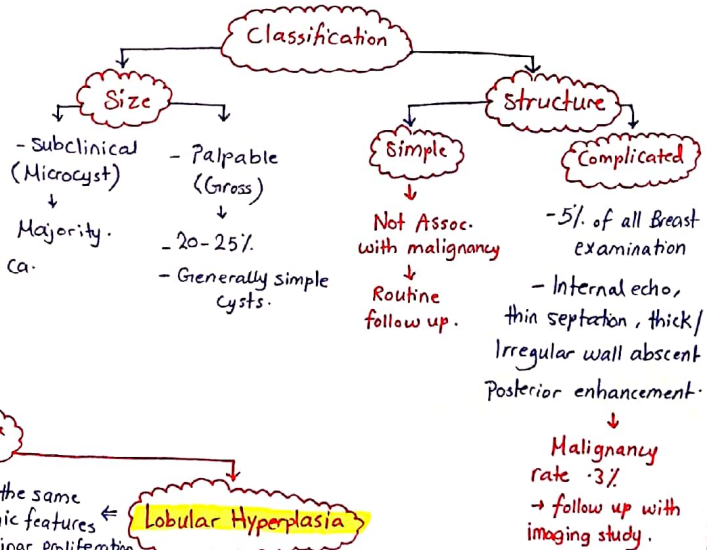 Classification
Size
- Subclinical
(Microcyst)
Majority.
ca.
- Palpable
(Gross)
- 20-25%
- Generally simple
cysts.
Structure
Simple
Not Assoc.
with malignancy
Routine
follow up.
Complicated
-5% of all Breast
examination
- Internal echo,
thin septation, thick/
Irregular wall abscent
Posterior enhancement.
Malignancy
rate .3%
→ follow up with
imaging study.
the same
ic features ⇐
inar proliferation
Lobular Hyperplasia